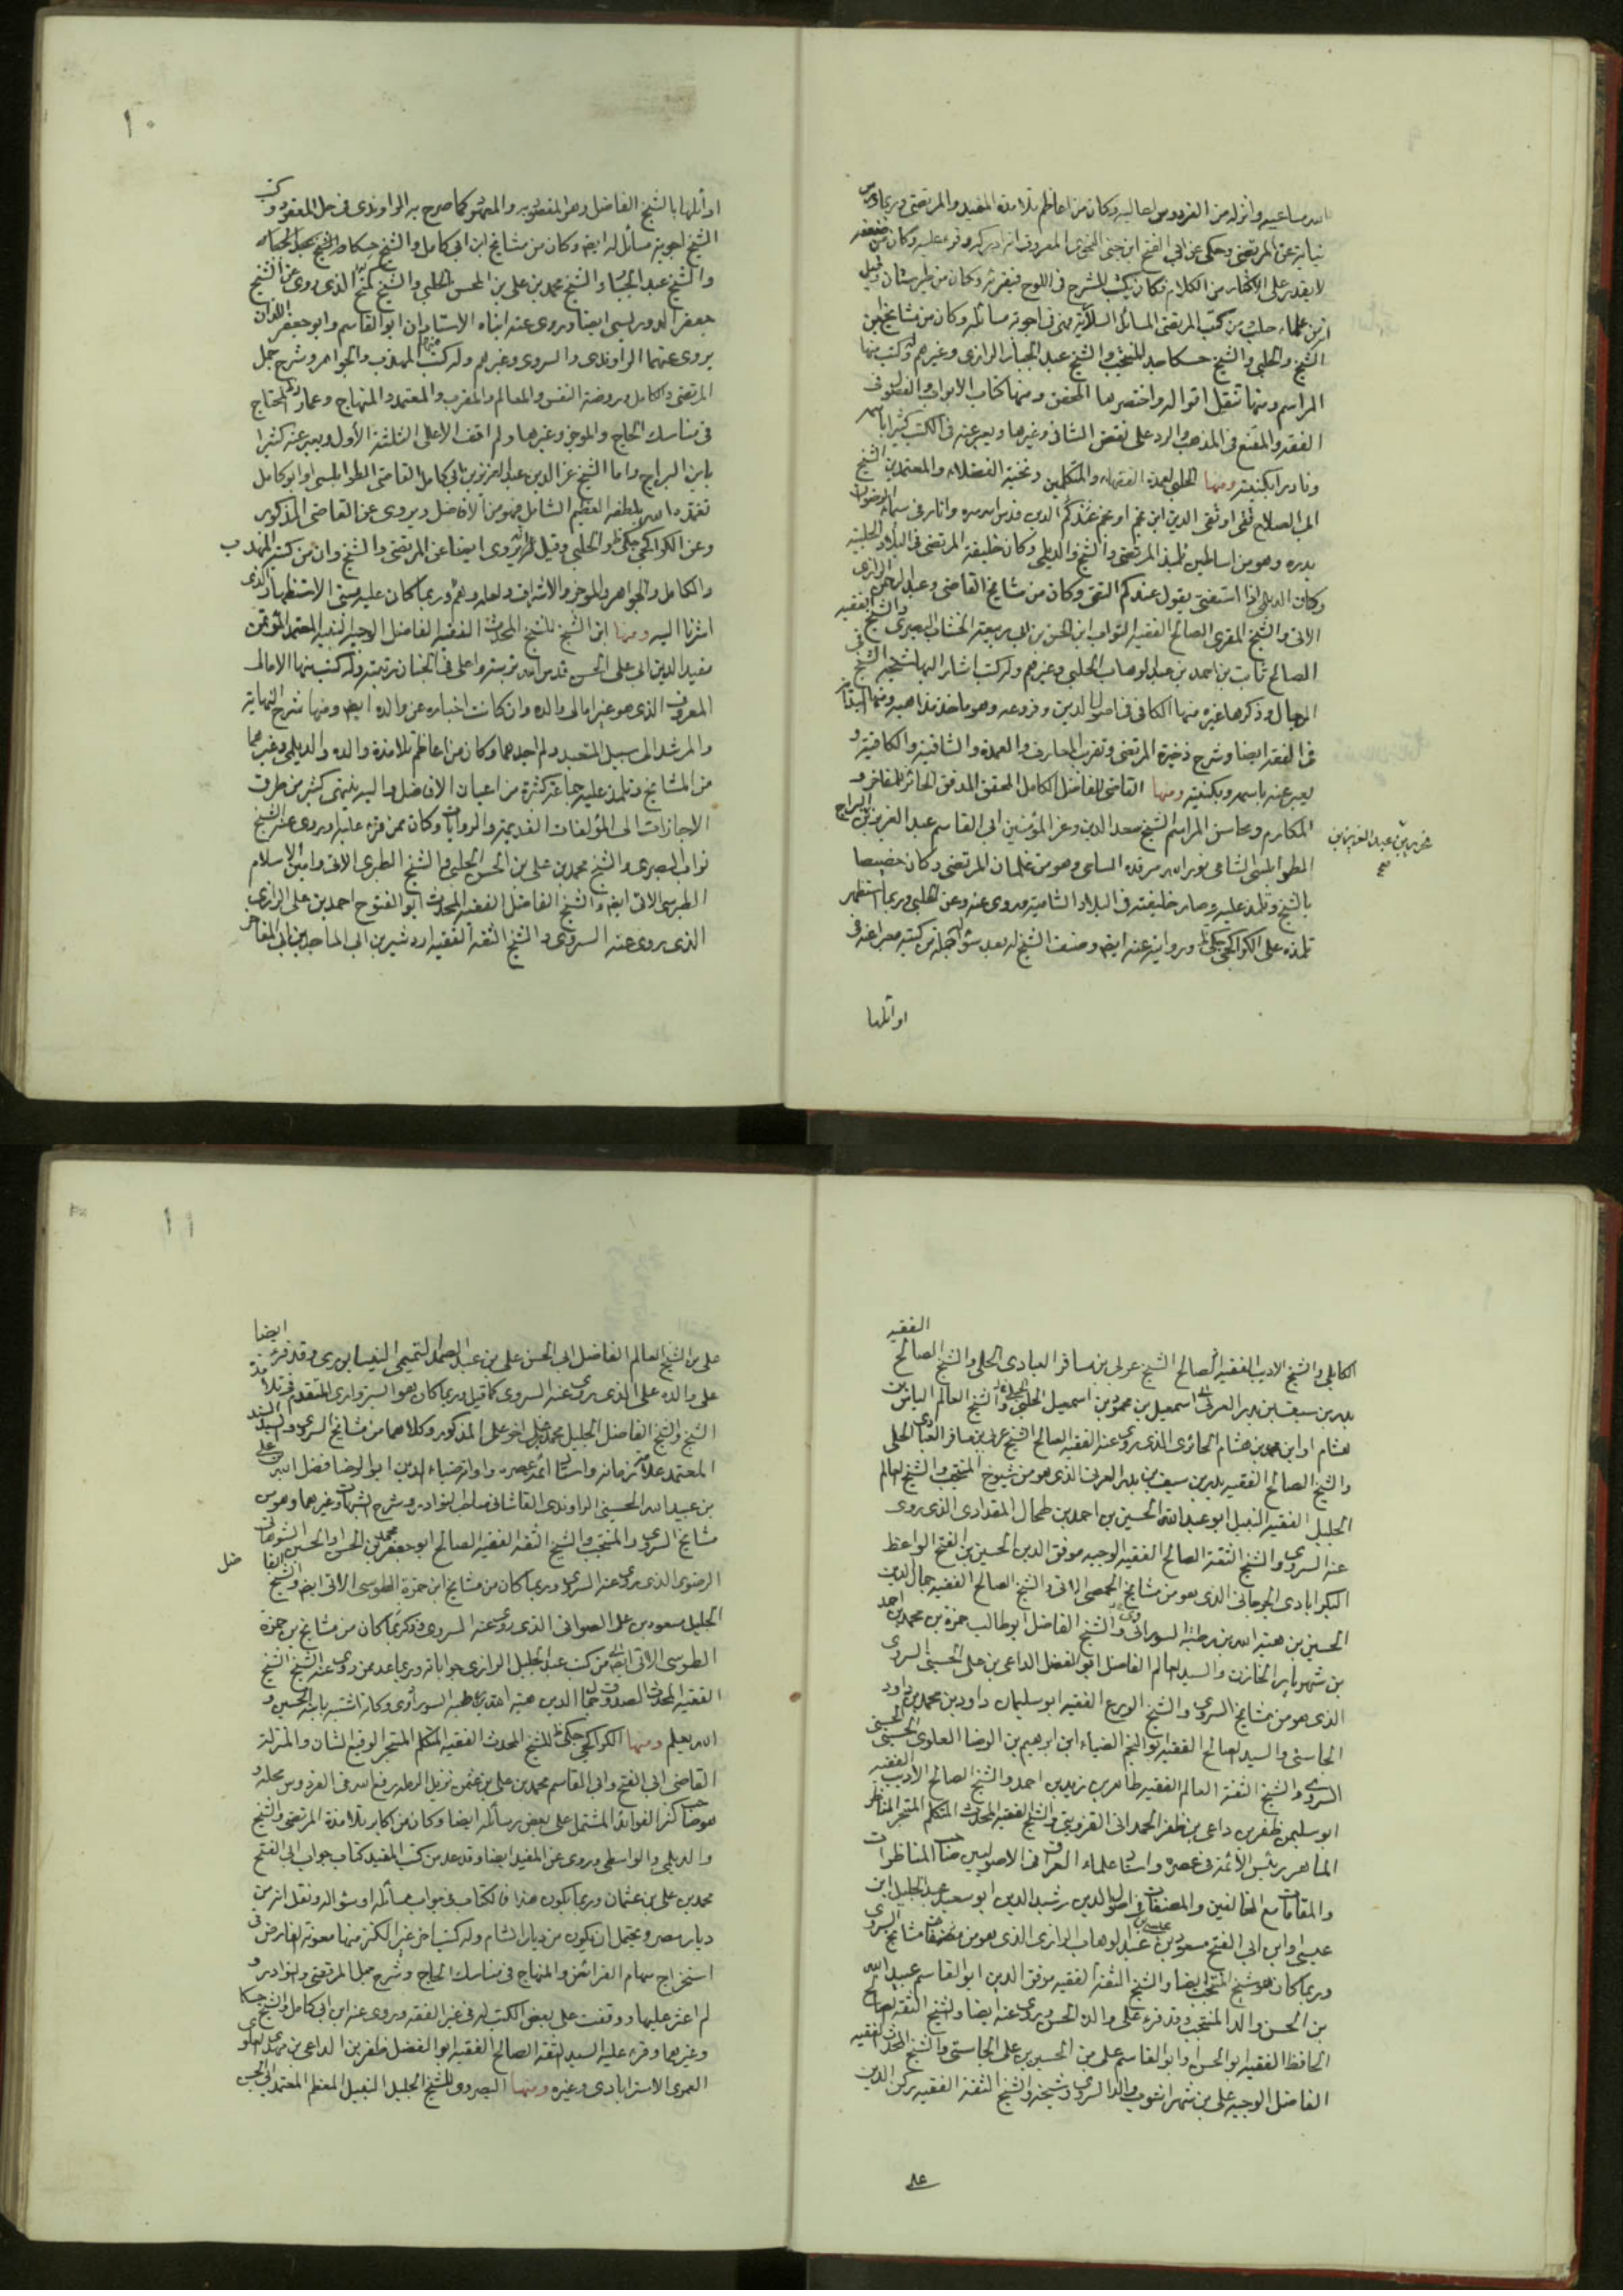 الله مساعيه وانزله من الفردوس اعاليه وكان من اعاظم تلامذة المفيد والمرتضى وربما درس
نيابة عن المرتضى وحكى عن ابي الفتح ابن جنى النحوي المعروف انه ادركه وقرء عليه وكان من ضعفه
لا يقدر على الاكثار من الكلام وكان يكتب الشرح في اللوح فيقرئه وكان من طبرستان وقيل
انه من علماء حلب من كتب المرتضى المسائل السلارية وهي في اجوبة مسائله وكان من مشايخ ابن
الشيخ والحلبي والشيخ حسكا جد المنتجب والشيخ عبد الجبار الرازي وغيرهم وله كتب منها
المراسم ومنها تنقل اقواله واختصرها المحقق ومنها كتاب الابواب والفصول في
الفقه والمقنع في المذهب والرد على نقض الشافي وغيرها ويعبر عنه في الكتب كثيرا باسمه
ونادرا بكنيته ومنها الحلبي لعمدة الفقهاء والمتكلمين ونخبة الفضلاء والمعتمدين الشيخ
ابي الصلاح تقي او تقي الدين ابن نجم او نجم الدين قدس الله سره وانار في سماء الرضوان
بدره وهو من اساطين تلميذ المرتضى والشيخ والديلمي وكان خليفة المرتضى في البلاد الحلبية
وكان الديلمي اذا استفتي يقول عندكم التقي وكان من مشايخ القاضي وعبد الرحمن الرازي
الاتي والشيخ المقري الصالح الفقيه التواب ابن الحسن بن ابي ربيعة الخشاب البصري والشيخ الفقيه
الصالح ثابت بن احمد بن عبد الوهاب الحلبي وغيرهم وله كتب اشار اليها شيخه الشيخ في
الرجال وذكرها غيره منها الكافي في اصول الدين وفروعه وهو ماخذ مذاهبه ومنها البداية
في الفقه ايضا وشرح ذخيرة المرتضى وتقريب المعارف والعمدة والشافية والكافية و
يعبر عنه باسمه وبكنيته ومنها القاضي للفاضل الكامل المحقق المدقق الحائز للمفاخر و
المكارم ومحاسن المراسم الشيخ سعد الدين وعز المؤمنين ابي القاسم عبد العزيز بن البراج
الطرابلسي الشامي نور الله مرقده السامي وهو من غلمان المرتضى وكان خصيصا
بالشيخ وتلمذ عليه وصار خليفته في البلاد الشامية وروى عنه وعن الحلبي وربما استظهر
تلمذه على الكراجكي وروايته عنه ايضا وصنف الشيخ له بعد سؤاله جملة من كتبه معبرا عنه في
اوائلها
عبد العزيز بن
اوائلها بالشيخ الفاضل وهو المقصود به والمعهود كما صرح به الراوندي في حل المعقود وكتب
الشيخ اجوبة مسائل له ايضا وكان من مشايخ ابن ابي كامل والشيخ حسكا والشيخ عبد الجبار
والشيخ عبد الجبار والشيخ محمد بن علي بن المحسن الحلبي والشيخ كميح الذي روى عن الشيخ
جعفر الدوريستي ايضا وروى عنه ابناه الاستادان ابو القاسم وابو جعفر اللذان
يروى عنهما الراوندي والسروي وغيرهم وله كتب منها المهذب والجواهر وشرح جمل
المرتضى والكامل وروضة النفس والمعالم والمقرب والمعتمد والمنهاج وعماد المحتاج
في مناسك الحاج والموجز وغيرها ولم اقف الا على الثلثة الأول ويعبر عنه كثيرا
بابن البراج واما الشيخ عز الدين عبد العزيز بن ابي كامل القاضي الطرابلسي او ابو كامل
تغمده الله بلطفه العظيم الشامل فهو من الافاضل ويروي عن القاضي المذكور
وعن الكراجكي والحلبي وقيل انه يروى ايضا عن المرتضى والشيخ وان من كتبه المهذب
والكامل والجواهر والموجز والاشراف ولعله وهم وربما كان عليه مبنى الاستظهار الذي
اشرنا اليه ومنها ابن الشيخ للشيخ المحدث الفقيه الفاضل الوجيه النبيه المعتمد المؤتمن
مفيد الدين ابي علي الحسن قدس الله تربته واعلى في الجنان رتبته وله كتب منها الامالي
المعروف الذي هو غير امالي والده وان كانت اخباره عن والده ايضا ومنها شرح النهاية
والمرشد الى سبيل المتعبد ولم اجدهما وكان من اعاظم تلامذة والده والديلمي وغيرهما
من المشايخ وتلمذ عليه جماعة كثيرة من اعيان الافاضل واليه ينتهي كثير من طرق
الاجازات الى المؤلفات القديمة والروايات وكان ممن قرء عليه وروى عنه الشيخ
تواب البصري والشيخ محمد بن علي بن المحسن الحلبي والشيخ الطبري الاتي وامين الاسلام
الطبرسي الاتي ايضا والشيخ الفاضل الفقيه المحدث ابو الفتوح احمد بن علي الرازي
الذي يروى عنه السروي والشيخ الثقة الفقيه اردشير بن ابي الماجدين ابي المفاخر
١٠
الكابلي والشيخ الاديب الفقيه الصالح الشيخ عربي بن مسافر العبادي الحلي والشيخ الصالح الفقيه
بدر بن سيف بن بدر العربي اسمعيل بن محمود بن اسمعيل الحلبي والشيخ العالم الياس بن
هشام او ابن محمد بن هشام الحائري الذي يروى عنه الفقيه الصالح الشيخ عربي بن مسافر العبادي الحلي
والشيخ الصالح الفقيه بدر بن سيف بن بدر العربي الذي هو من شيوخ المنتجب والشيخ العالم
الجليل الفقيه النبيل ابو عبد الله الحسين بن احمد بن طحال المقدادي الذي روى
عنه السروي والشيخ الثقة الصالح الفقيه الوجيه موفق الدين الحسين بن الفتح الواعظ
البكرابادي الجرجاني الذي هو من مشايخ الحمصي الاتي والشيخ الصالح الفقيه جمال الدين
الحسين بن هبة الله بن رطبة السوراوي والشيخ الفاضل ابو طالب حمزة بن محمد بن احمد
بن شهريار الخازن والسيد العالم الفاضل ابو الفضل الداعي بن علي الحسيني السروي
الذي هو من مشايخ السروي والشيخ الورع الفقيه ابو سليمان داود بن محمد بن داود
الجاستي والسيد الصالح الفقيه ابو النجم الضياء ابن ابرهيم بن الرضا العلوي الحسني الحسيني
السروي والشيخ الثقة العالم الفقيه طاهر بن زيد بن احمد والشيخ الصالح الاديب الفقيه
ابو سليمن ظفر بن داعي بن ظفر الحمداني القزويني والشيخ الفقيه المحدث المتكلم المتبحر المناظر
الماهر رئيس الأئمة في عصره واستاد علماء العراق في الاصوليين صاحب المناظرات
والمقامات مع المخالفين والمصنفات في اصول الدين رشيد الدين ابو سعيد عبد الجليل ابن
عيسى او ابن ابي الفتح مسعود بن عيسى بن عبد الوهاب الرازي الذي هو من مشايخ السروي
وربما كان هو شيخ المنتجب ايضا والشيخ الثقة الفقيه موفق الدين ابو القاسم عبيد الله
بن الحسن والد المنتجب وقد قرء على والده الحسن ويروى عنه ايضا والشيخ الثقة الصالح
الحافظ الفقيه ابو الحسن او ابو القاسم علي بن الحسين بن علي الجاستي والشيخ المحدث الفقيه
الفاضل الوجيه علي بن شهراشوب والد السروي وشيخه والشيخ الثقة الفقيه ركن الدين
علي
علي بن الشيخ العالم الفاضل ابي الحسن علي بن عبد الصمد التميمي النيسابوري وقد قرء ايضا
على والده علي الذي يروى عنه السروي كما قيل وربما كان هو السبزواري المتقدم في تلامذة
الشيخ والشيخ الفاضل الجليل محمد بن علي اخو علي المذكور وكلاهما من مشايخ السروي والسيد السند
المعتمد علامة زمانه واستاد ائمة عصره واوانه ضياء الدين ابو الرضا فضل الله بن علي
بن عبيد الله الحسيني الراوندي القاشاني صاحب النوادر وشرح الشهاب وغيرهما وهو من
مشايخ السروي والمنتجب والشيخ الثقة الفقيه الصالح ابو جعفر محمد بن الحسن او الحسين الشوهاني
الرضوي الذي يروى عنه السروي وربما كان من مشايخ ابن حمزة الطوسي الاتي ايضا والشيخ الفاضل
الجليل مسعود بن علي الصوابي الذي روى عنه السروي وذكر كما كان من مشايخ بن حمزة
الطوسي الاتي ايضا من كتب عبد الجليل الرازي جواباته وربما عد ممن روى عنه الشيخ الشيخ
الفقيه المحدث الصدوق جمال الدين هبة الله بن رطبة السوراوي وكانه اشتبه بابنه الحسين و
الله يعلم ومنها الكراجكي للشيخ المحدث الفقيه المتكلم المتبحر الرفيع الشان والمنزلة
القاضي ابي الفتح وابي القاسم محمد بن علي بن عثمن نزيل الرملة رفع الله في الفردوس محله و
هو صاحب كنز الفوائد المشتمل على بعض رسائله ايضا وكان من اكابر تلامذة المرتضى والشيخ
والديلمي والواسطي ويروى عن المفيد ايضا وقد عد من كتب المفيد كتاب جواب ابي الفتح
محمد بن علي بن عثمان وربما يكون هذا الكتاب في جواب مسائله او سؤاله ونقل انه من
ديار مصر ويحتمل ان يكون من ديار الشام وله كتب اخر غير الكنز منها معونة الفارض في
استخراج سهام الفرائض والمنهاج في مناسك الحاج وشرح جمل المرتضى والنوادر و
لم اعثر عليها ووقفت على بعض الكتب له في غير الفقه ويروى عنه ابن ابي كامل والشيخ حسكا
وغيرهما وقرء عليه السيد الثقة الصالح الفقيه ابو الفضل ظفر بن الداعي بن مهدي العلوي
العمري الاسترابادي وغيره ومنها الصهرشتي للشيخ الجليل النبيل المعظم المعتمد ابي الحسن
١١